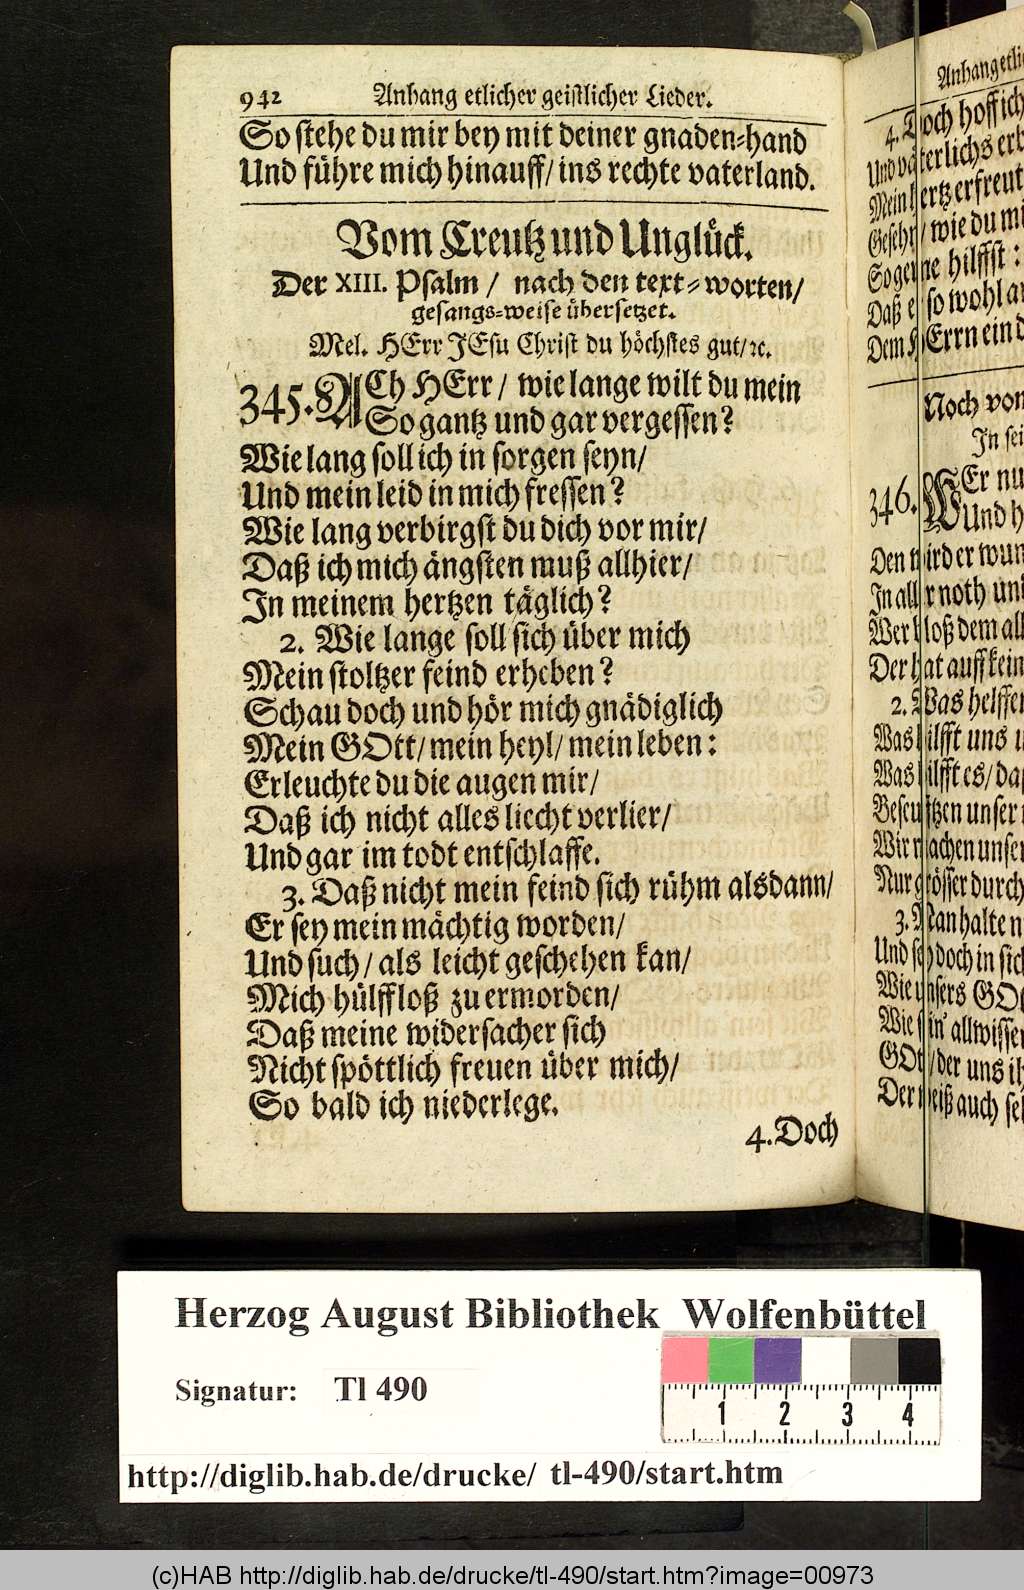 942 Anhang etlicher geistlicher Lieder.
So stehe du mir bey mit deiner gnaden-hand
Und führe mich hinauff/ ins rechte vaterland.
Vom Creutz und Unglück.
Der XIII. Psalm/ nach den text-worten/
gesangs-weise übersetzet.
Mel. HErr JEsu Christ du höchstes gut/ꝛc.
345. ACh HErr/ wie lange wilt du mein
So gantz und gar vergessen?
Wie lang soll ich in sorgen seyn/
Und mein leid in mich fressen?
Wie lang verbirgst du dich vor mir/
Daß ich mich ängsten muß allhier/
In meinem hertzen täglich?
2. Wie lange soll sich über mich
Mein stoltzer feind erheben?
Schau doch und hör mich gnädiglich
Mein GOtt/ mein heyl/ mein leben:
Erleuchte du die augen mir/
Daß ich nicht alles liecht verlier/
Und gar im todt entschlaffe.
3. Daß nicht mein feind sich rühm alsdann/
Er sey mein mächtig worden/
Und such/ als leicht geschehen kan/
Mich hülffloß zu ermorden/
Daß meine widersacher sich
Nicht spöttlich freuen über mich/
So bald ich niederlege.
4. Doch
Anhang
4. Doch hoff ich
Noch von
346. WEr nu
Und h
Den wird er wun
In aller noth un
Wer bloß dem all
Der hat auff kein
2. Was helffen
Was hilfft uns
Was hilfft es/ daß
Beseufftzen unser
Wir machen unser
Nur grösser durch
3. Man halte n
Und sey doch in sich
Wie unsers GOt
Wie sein' allwissen
GOtt/ der uns ih
Der weiß auch se
Herzog August Bibliothek Wolfenbüttel
Signatur: Tl 490
1 2 3 4
http://diglib.hab.de/drucke/ tl-490/start.htm
(c)HAB http://diglib.hab.de/drucke/tl-490/start.htm?image=00973